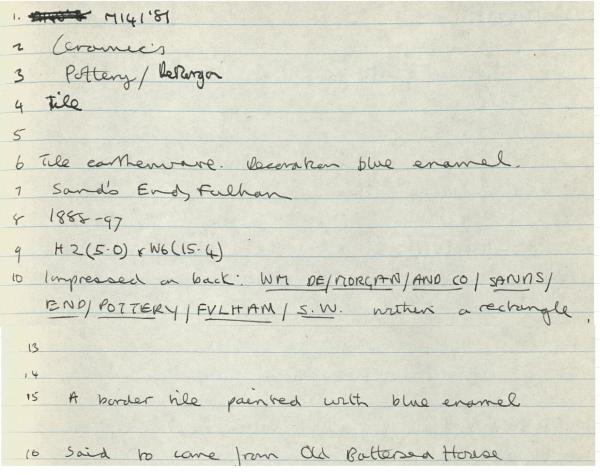 1. M141'81
2 Ceramics
3 Pottery / De Morgan
4 Tile
5
6 Tile earthenware. Decoration blue enamel.
7 Sand's End, Fulham
8 1888-97
9 H 2 (5.0) x W6 (15.4)
10 Impressed on back: WM DE/MORGAN/AND CO / SANDS/
END/ POTTERY / FULHAM / S.W. within a rectangle.
13
14
15 A border tile painted with blue enamel
16 Said to come from Old Battersea House